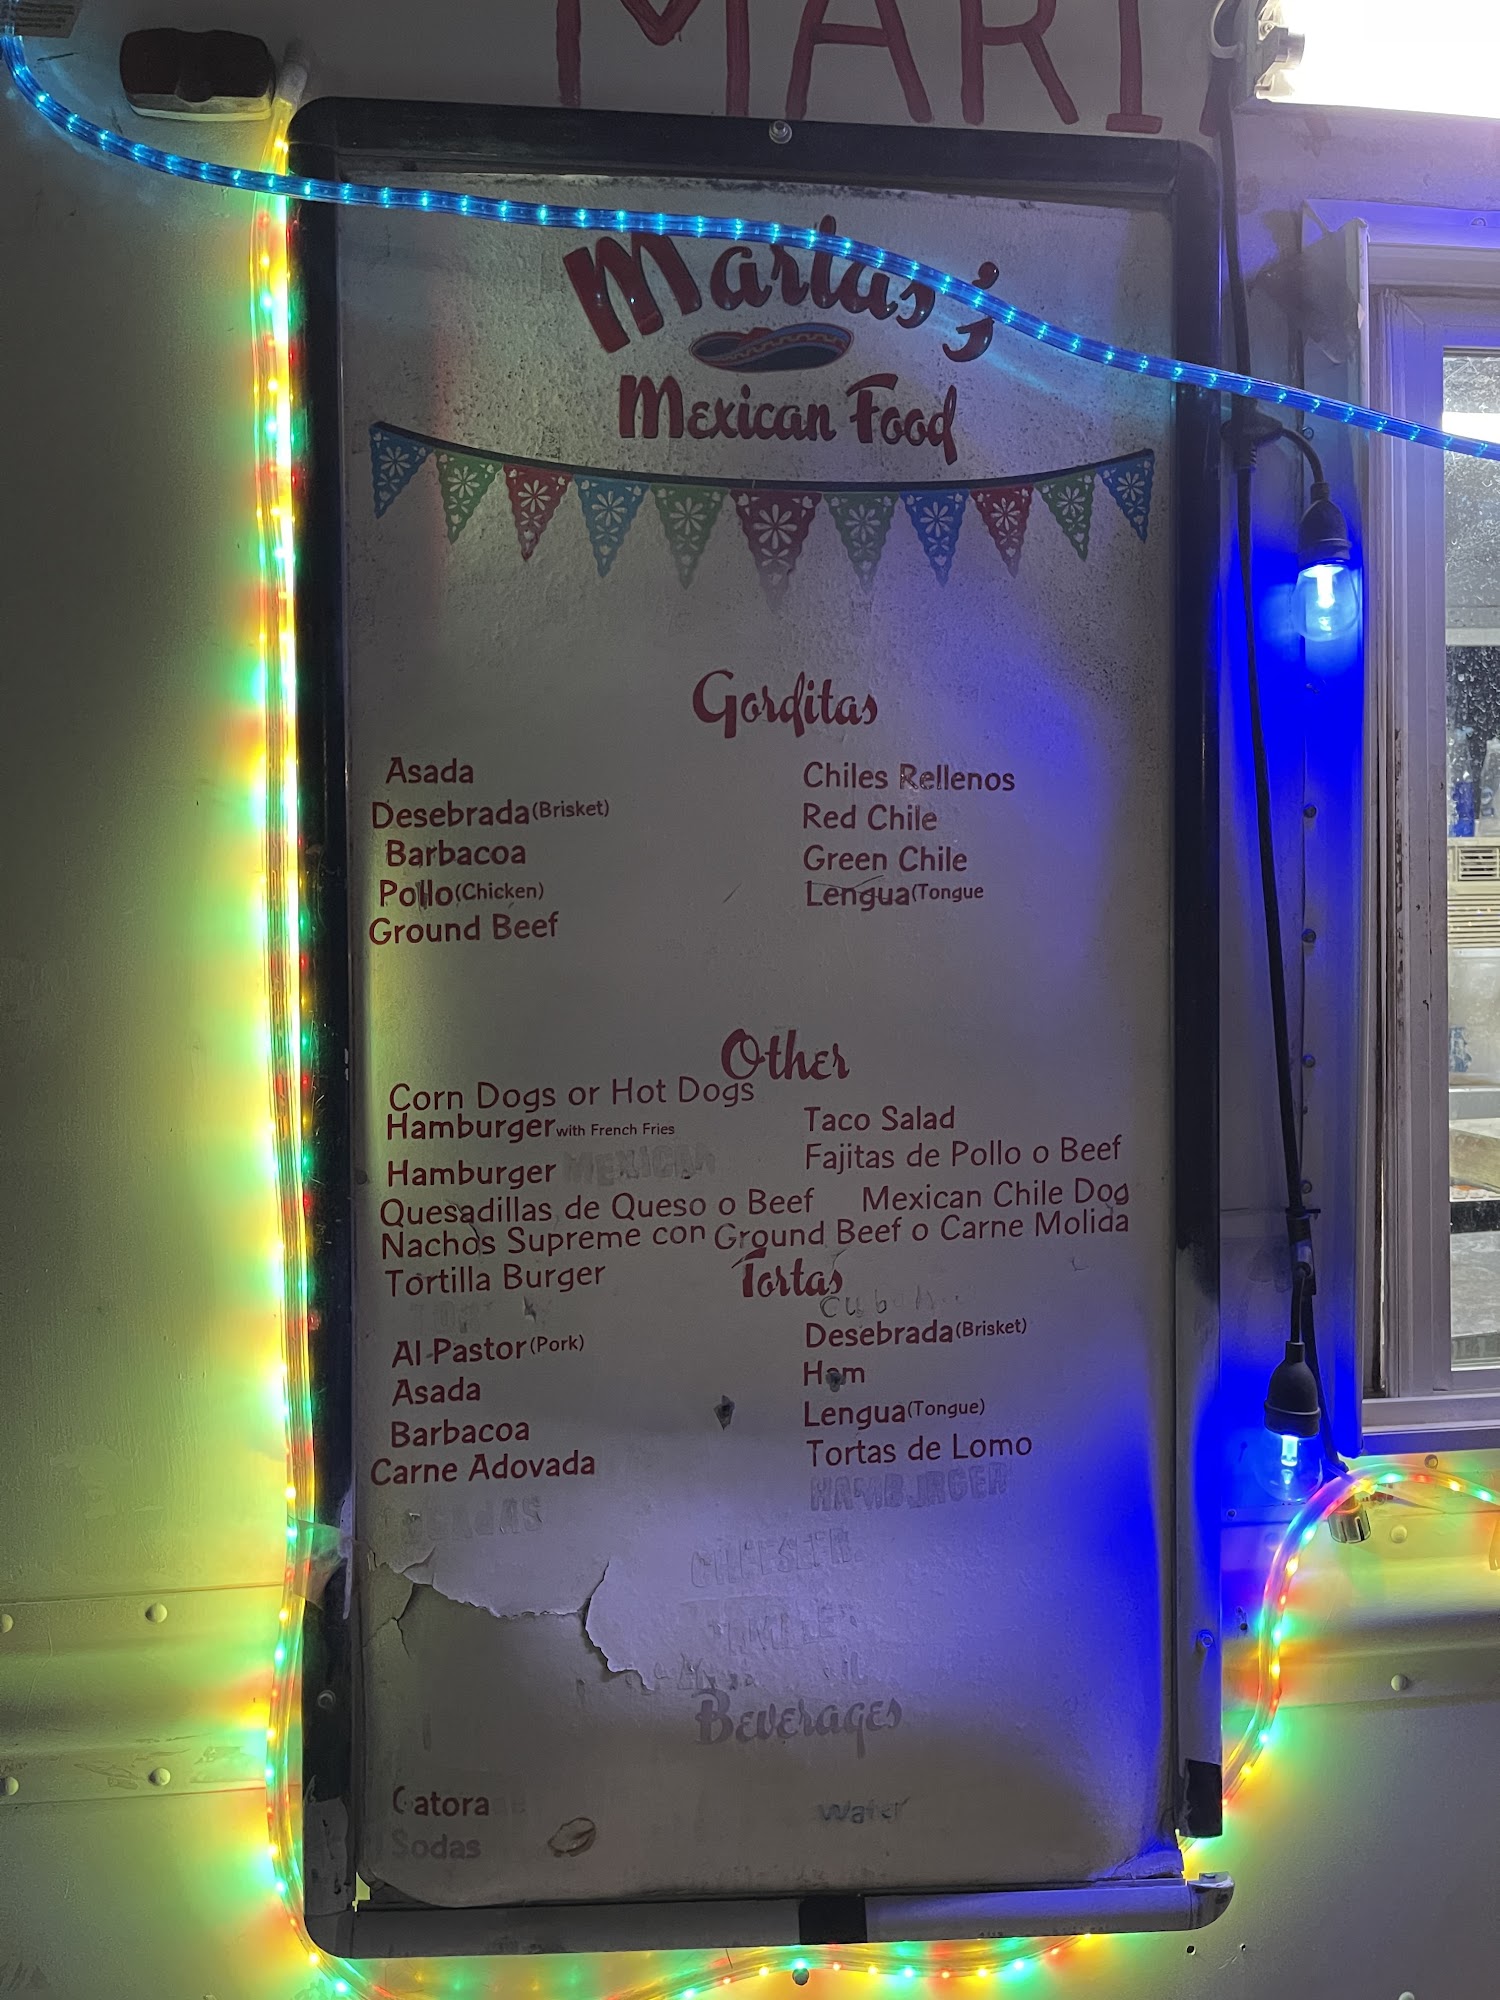 MARI
Martas's
Mexican Food
Gorditas
Asada
Desebrada (Brisket)
Barbacoa
Pollo (Chicken)
Ground Beef
Chiles Rellenos
Red Chile
Green Chile
Lengua (Tongue
Other
Corn Dogs or Hot Dogs
Hamburger with French Fries
Hamburger MEXICAN
Taco Salad
Fajitas de Pollo o Beef
Quesadillas de Queso o Beef
Mexican Chile Dog
Nachos Supreme con Ground Beef o Carne Molida
Tortilla Burger
Tortas
Al Pastor (Pork)
Asada
Barbacoa
Carne Adovada
Desebrada (Brisket)
Ham
Lengua (Tongue)
Tortas de Lomo
HAMBURGER
Beverages
Gatorade
Sodas
Water